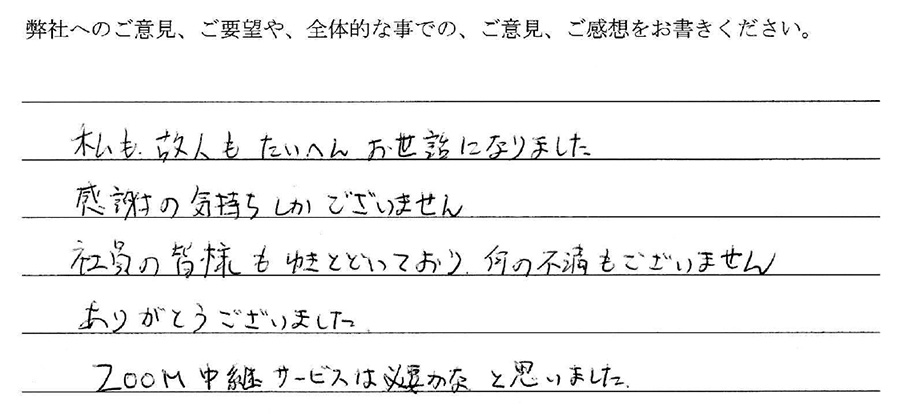 弊社へのご意見、ご要望や、全体的な事での、ご意見、ご感想をお書きください。
私も、故人もたいへんお世話になりました
感謝の気持ちしかございません
社員の皆様もゆきとどいており、何の不満もございません
ありがとうございました
ZOOM中継サービスは必要かなと思いました。